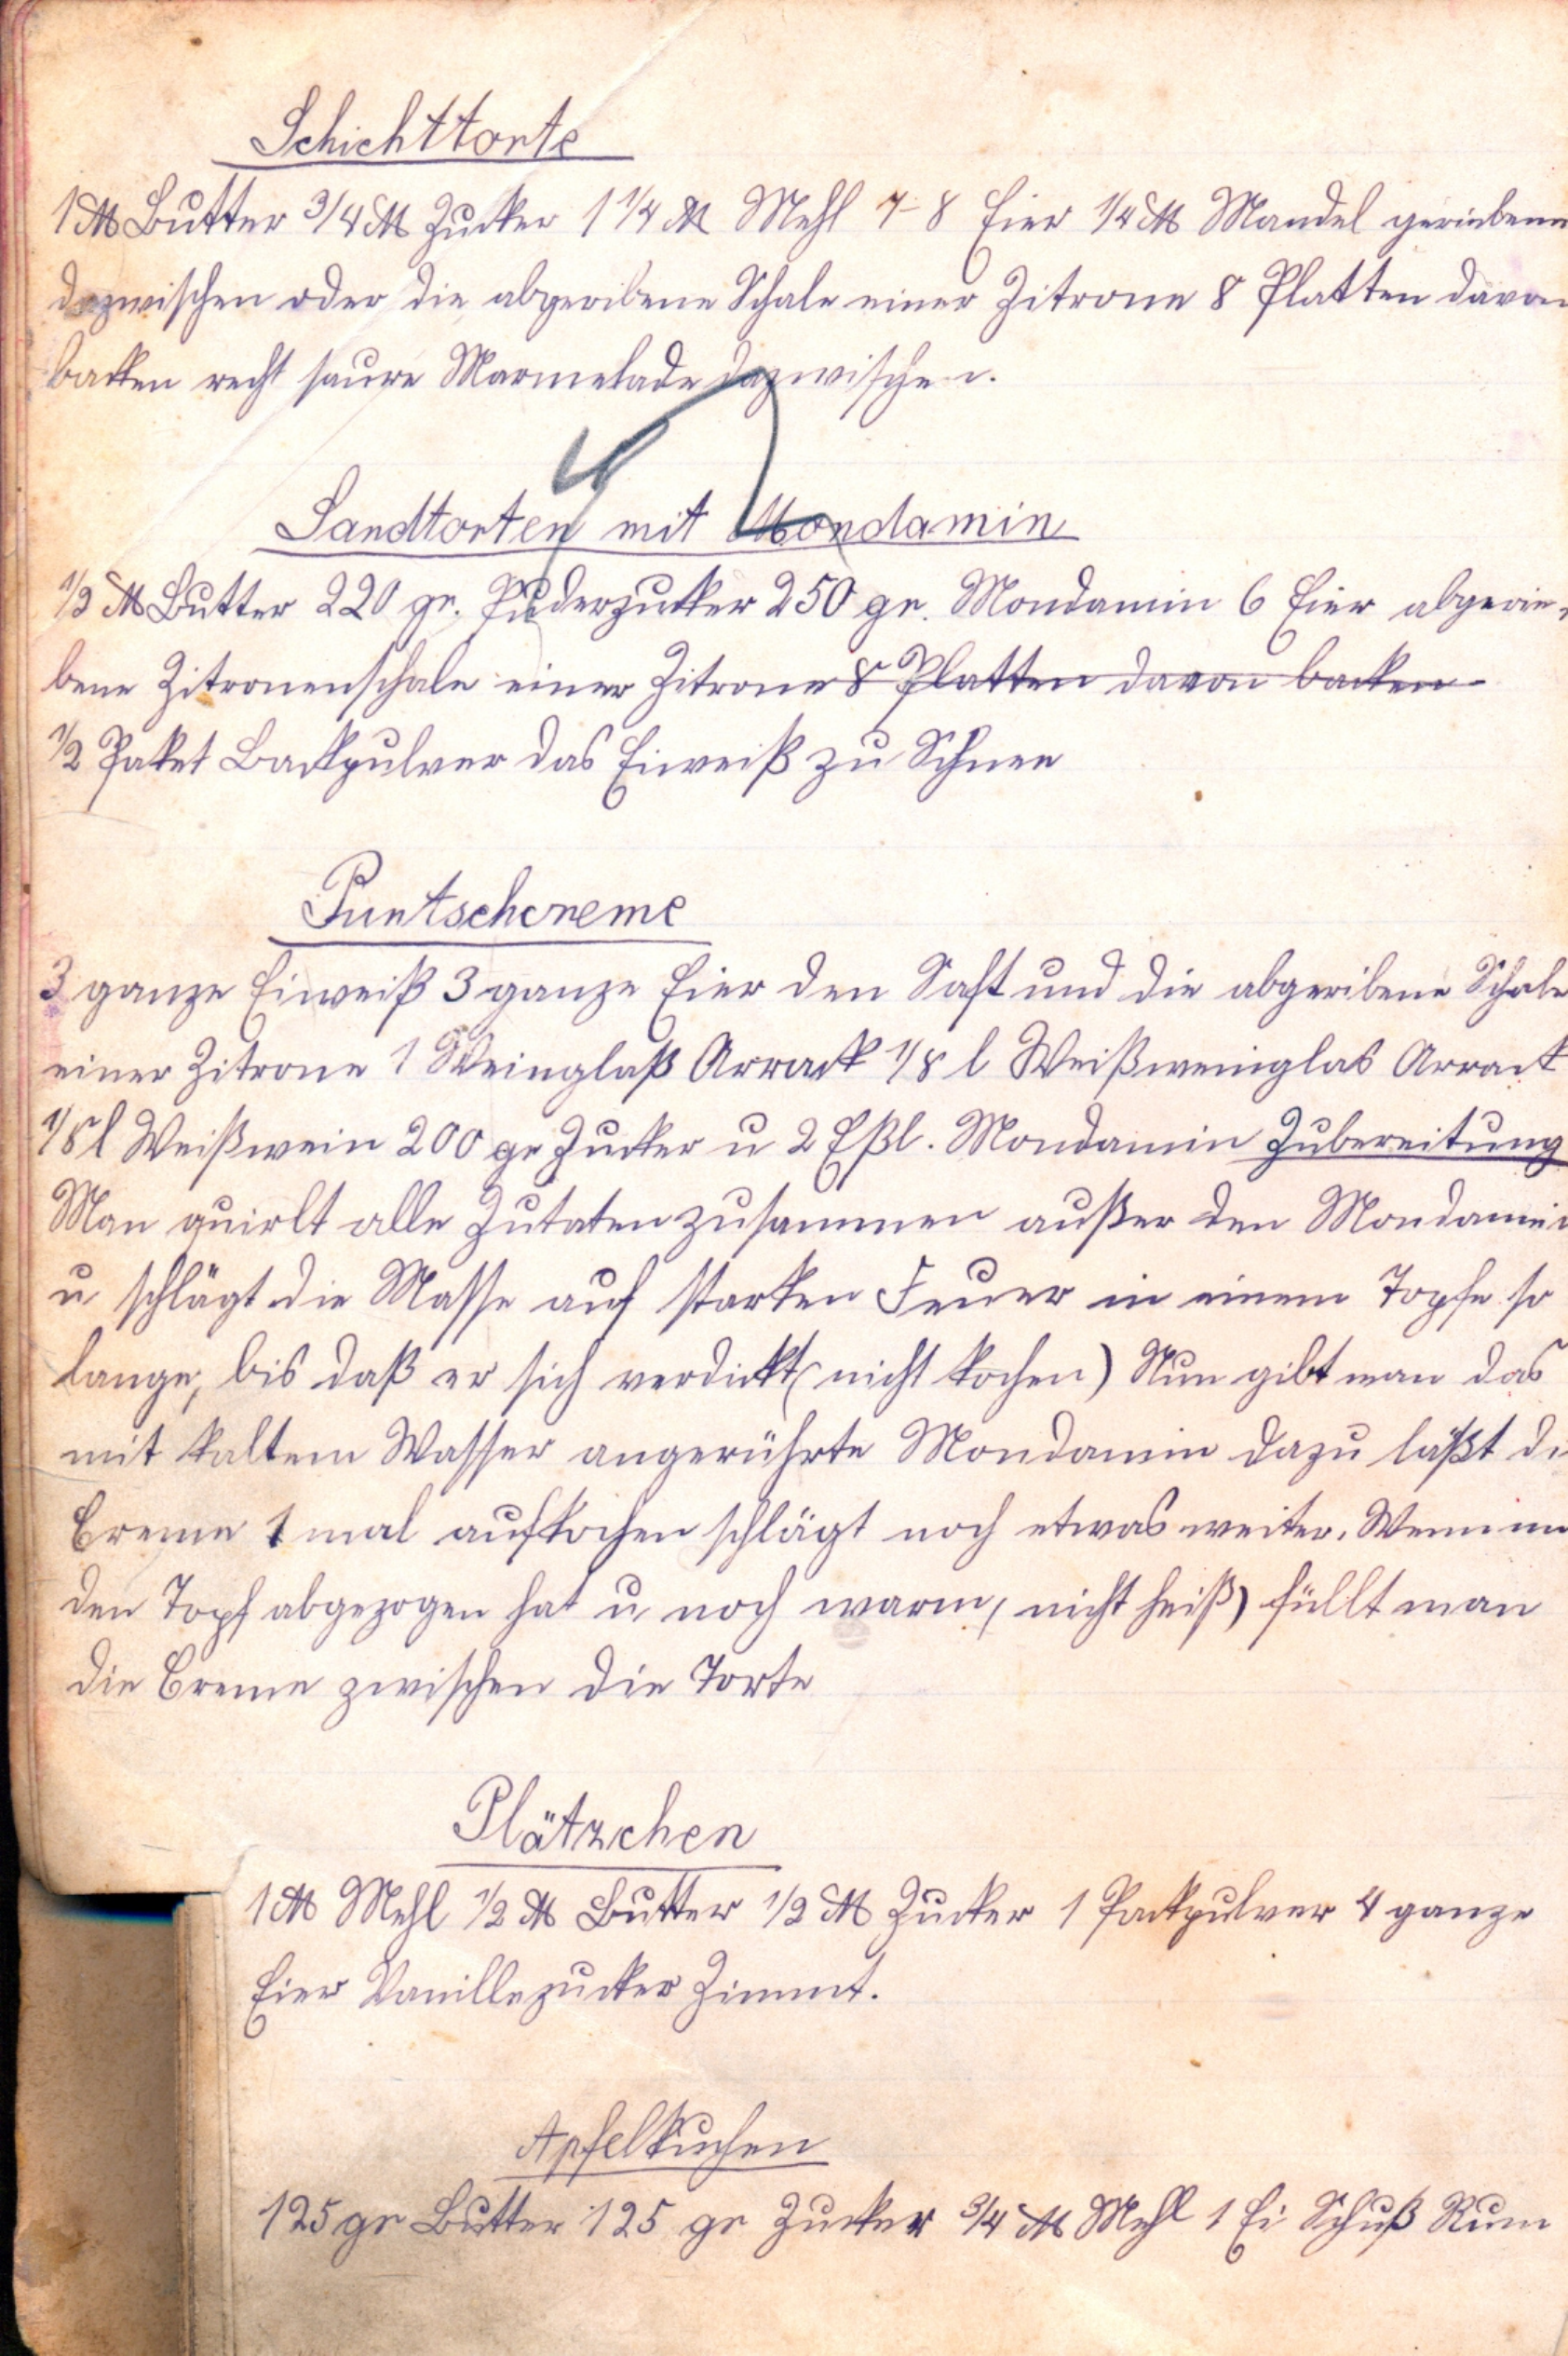 Schichttorte
1 ℔ Butter 3/4 ℔ Zucker 1 1/4 ℔ Mehl 7-8 Eier 1/4 ℔ Mandel geriebene
dazwischen oder die abgeribene Schale einer Zitrone 8 Platten davon
backen recht saure Marmelade dazwischen.
Sandtorten mit Mondamin
1/2 ℔ Butter 220 gr. Puderzucker 250 gr. Mondamin 6 Eier abgerie-
bene Zitronenschale einer Zitrone 8 Platten davon backen
1/2 Paket Backpulver das Eiweiß zu Schnee
Puntschcreme
3 ganze Eiweiß 3 ganze Eier den Saft und die abgeribene Schale
einer Zitrone 1 Weinglaß Arrack 1/8 l Weißweinglas Arrack
1/8 l Weißwein 200 gr Zucker u 2 Eßl. Mondamin Zubereitung
Man quirlt alle Zutaten zusammen außer den Mondamin
u schlägt die Masse auf starken Feuer in einem Topfe so
lange, bis daß er sich verdickt (nicht kochen) Nun gibt man das
mit kaltem Wasser angerührte Mondamin dazu läßt di
Creme 1 mal aufkochen schlägt noch etwas weiter. Wenn
den Topf abgezogen hat u noch warm, (nicht heiß) füllt man
die Creme zwischen die Torte
Plätzchen
1 ℔ Mehl 1/2 ℔ Butter 1/2 ℔ Zucker 1 Packpulver 4 ganze
Eier Vanillezucker Zimmt.
Apfelkuchen
125 gr Butter 125 gr Zucker 3/4 ℔ Mehl 1 Ei Schuß Rum